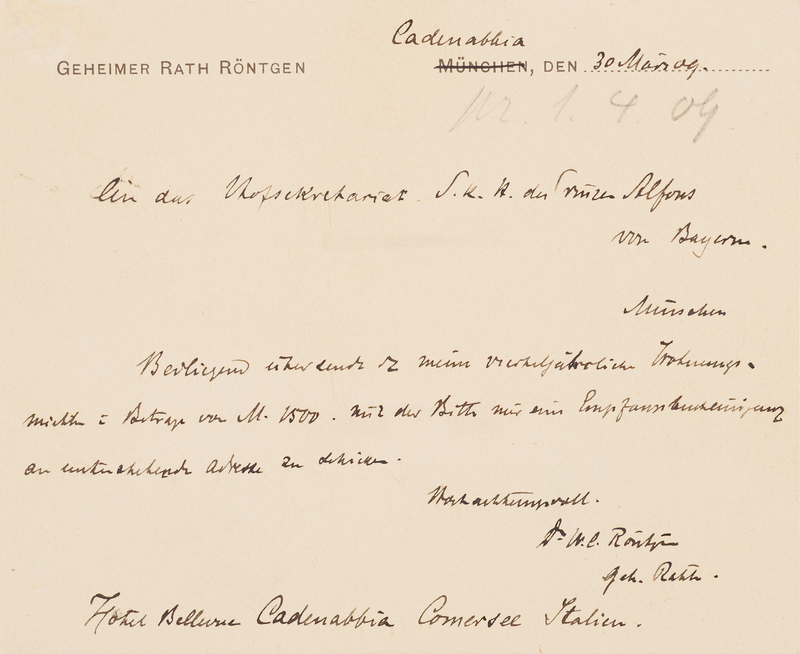 Cadenabbia
GEHEIMER RATH RÖNTGEN MÜNCHEN, DEN 30 März 09.
pr. 1. 4. 09
An das Hofsekretariat S. K. H. des Prinzen Alfons
von Bayern.
München
Beiliegend übersende ich meine vierteljährliche Wohnungs-
miethe i Betrage von M. 1500. mit der Bitte mir eine Empfangsbescheinigung
an untenstehende Adresse zu schicken.
Hochachtungsvoll.
Dr W. C. Röntgen
Geh. Rath.
Hôtel Bellevue Cadenabbia Comersee Italien.